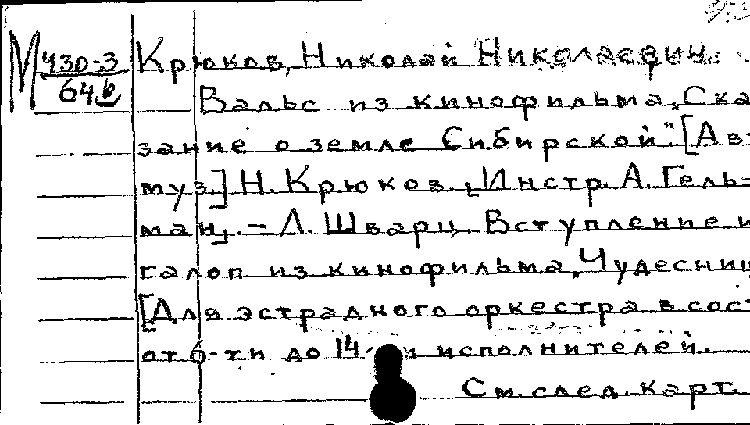 М 430-3 Крюков, Николай Николаевич.
64 в
Вальс из кинофильма „Ска-
зание о земле Сибирской". [Ав-
муз.] Н. Крюков. [Инстр. А. Гель-
ман]. – Л. Шварц. Вступление и
галоп из кинофильма „Чудесниц
[Для эстрадного оркестра в сост
от 6-ти до 14-и исполнителей.
См. след. карт.